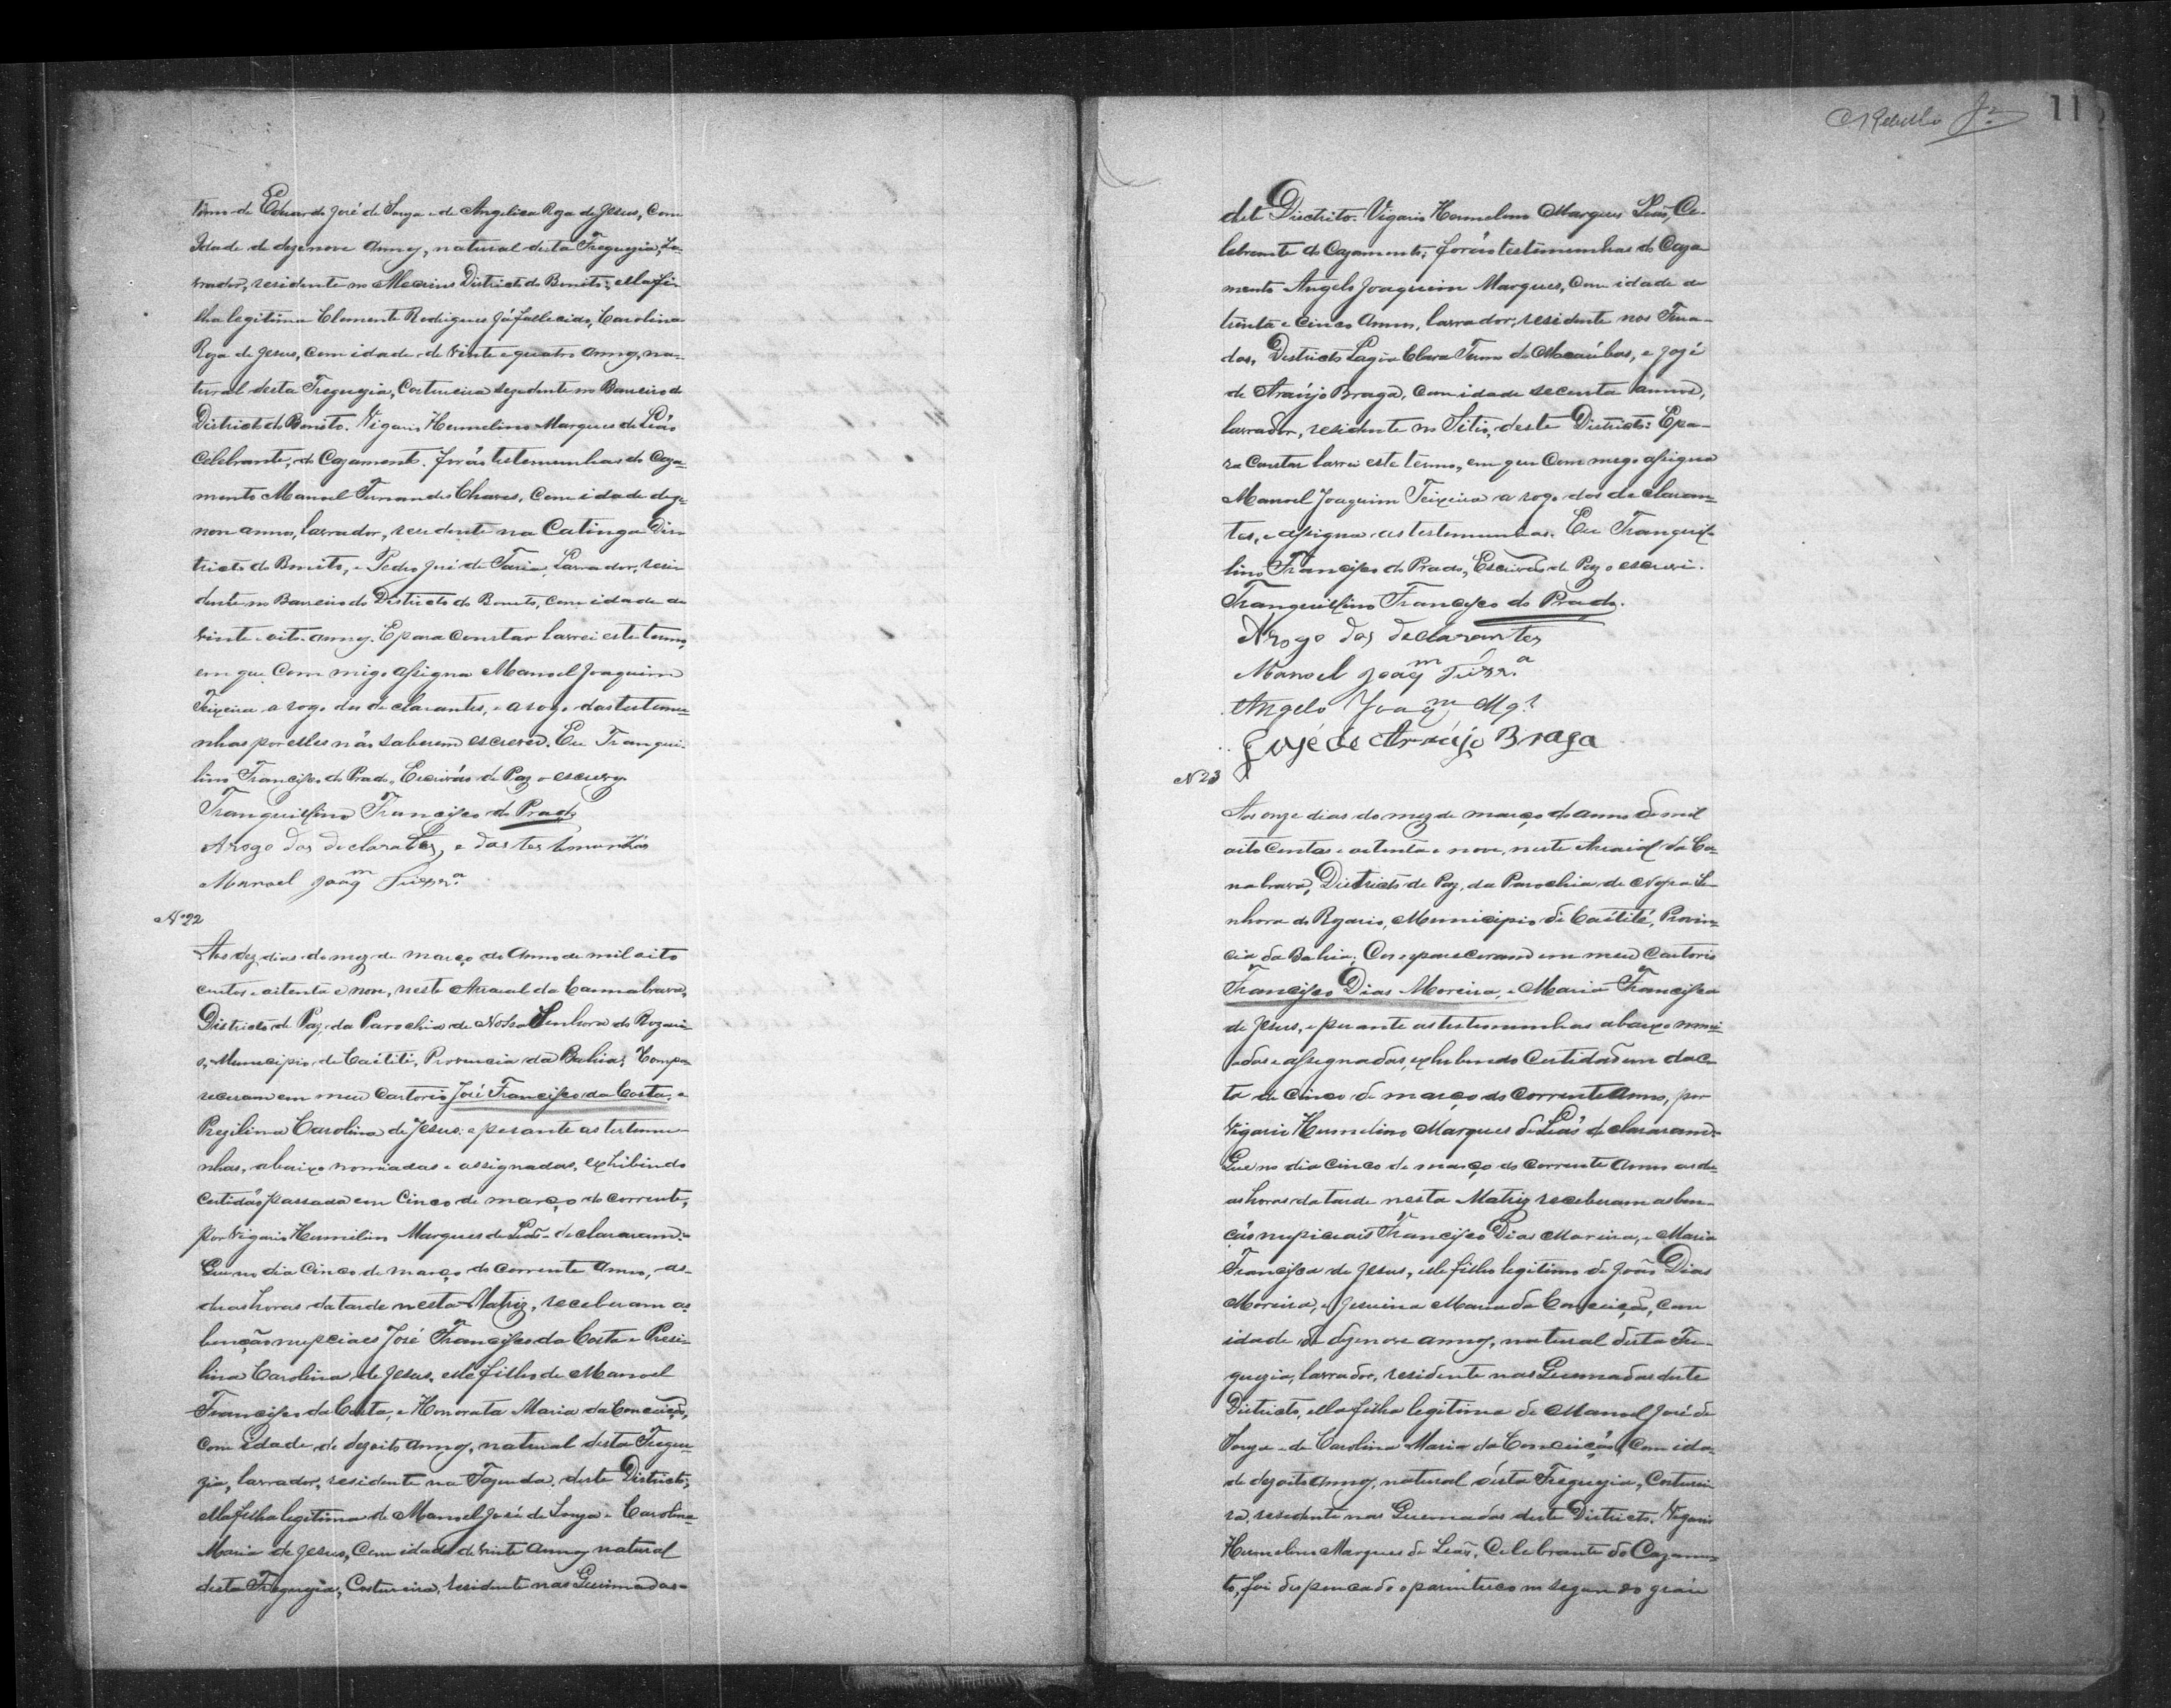 timo de Eduardo José de Souza e de Angelica Roza de Jesus, com
Idade de dezenove annos, natural desta Freguezia, La-
vrador, residente no Districto do Bonito; ella fi-
lha legitima Clemente Rodrigues já fallecido, Carolina
Roza de Jesus, com idade de vinte e quatro annos, na-
tural desta Freguezia, Costureira rezedente no Barreiro do
Districto do Bonito. Vigario Hermelino Marques de Leão
Celebrante, do Cazamento. Forão testemunhas do Caza-
mento Manoel Fernandes Chaves, com idade deze-
nove annos, lavrador, rezidente na Catinga Dis-
tricto do Bonito, e Pedro José de Faria, Lavrador, resi-
dente no Barreiro do Districto do Bonito, com idade de
vinte e oito annos. E para constar lavrei este termo,
em que commigo assigna Manoel Joaquim
Teixeira a rogo dos declarantes, e a rogo das testemu-
nhas por elles não saberem escrever. Eu Tranqui-
lino Francisco do Prado, Escrivão de Paz o escrevy.
Tranquillino Francisco do Prado
Arogo dos declarates, e das testemunhas
Manoel Joaqm Teixra.
Nº 22
Aos dez dias do mez de março do Anno de mil oito
centos e oitenta e nove, neste Arraial da Cannabrava,
Districto de Paz, da Parochia de Nossa Senhora do Rozari-
o, Municipio de Caitité, Provincia da Bahia; Compa-
receram em meu Cartorio José Francisco da Costa, e
Prezilina Carolina de Jesus: e perante as testemu-
nhas, abaixo nomiadas e assignadas, exhibindo
Certidão passada em Cinco de março do corrente,
por Vigario Hermelino Marques de Leão declararam:
Que no dia Cinco de março do corrente Anno, as
duas horas da tarde nesta Matriz, receberam as
benção nupciaes José Francisco da Costa e Presi-
lina Carolina de Jesus, elle filho de Manoel
Francisco da Costa, e Honorata Maria da Conceição,
com idade de dezoito annos, natural desta Fregue-
zia, lavrador, residente na Fazenda deste Districto,
ella filha legitima de Manoel José de Souza e Carolina
Maria de Jesus, com idade de vinte annos natural
desta Freguezia, Costureira, residente nas Queimadas
Rebello Jr. 11
deste Districto. Vigario Hermelino Marques Leão, Ce-
lebrante do Cazamento; forão testemunhas do Caza-
mento Angelo Joaquim Marques, com idade de
trinta e cinco annos, lavrador, residente nos
Districto Lagôa Clara Termo de Macaúbas, e José
de Araújo Braga, com idade secenta annos,
lavrador, residente no Sitio, deste Districto: E pa-
ra constar lavrei este termo, em que commigo assigna
Manoel Joaquim Teixeira a rogo dos declaran-
tes, e assigna as testemunhas. Eu Tranquil-
lino Francisco do Prado, Escrivão de Paz o escrevi.
Tranquillino Francisco do Prado.
Arogo dos declarantes
Manoel Joaqm Teixra.
Angelo Joaqm Mqs
José de Araújo Braga
Nº 23
Aos onze dias do mez de março do anno de mil
oito Centos e oitenta e nove, neste Arraial da Ca-
nabrava, Districto de Paz, da Parochia de Nossa Se-
nhora do Rozario, Municipio de Caitité, Provin-
cia da Bahia; Compareceram em meu Cartorio
Francisco Dias Moreira, e Maria Francisca
de Jesus, e perante as testemunhas abaixo nomi-
adas e assignadas, exhibindo Certidão em dac-
ta de cinco de março do corrente Anno, por
Vigario Hermelino Marques de Leão declararam:
Que no dia cinco de março do corrente Anno as du-
as horas da tarde nesta Matriz receberam as ben-
ção nupiciais Francisco Dias Moreira, e Maria
Francisca de Jesus, elle filho legitimo de João Dias
Moreira, e Jesuina Maria da Conceição, com
idade de dezenove annos, natural desta Fre-
guezia, lavrador, residente nas Queimadas deste
Districto, ella filha legitima de Manoel José de
Souza e de Carolina Maria da Conceição, com ida-
de dezoito annos, natural désta Freguezia, Costurei-
ra, residente nas Queimadas deste Districto. Vigario
Hermelino Marques de Leão, Celebrante do Cazamen-
to, foi despençado o parintesco no segundo gráu